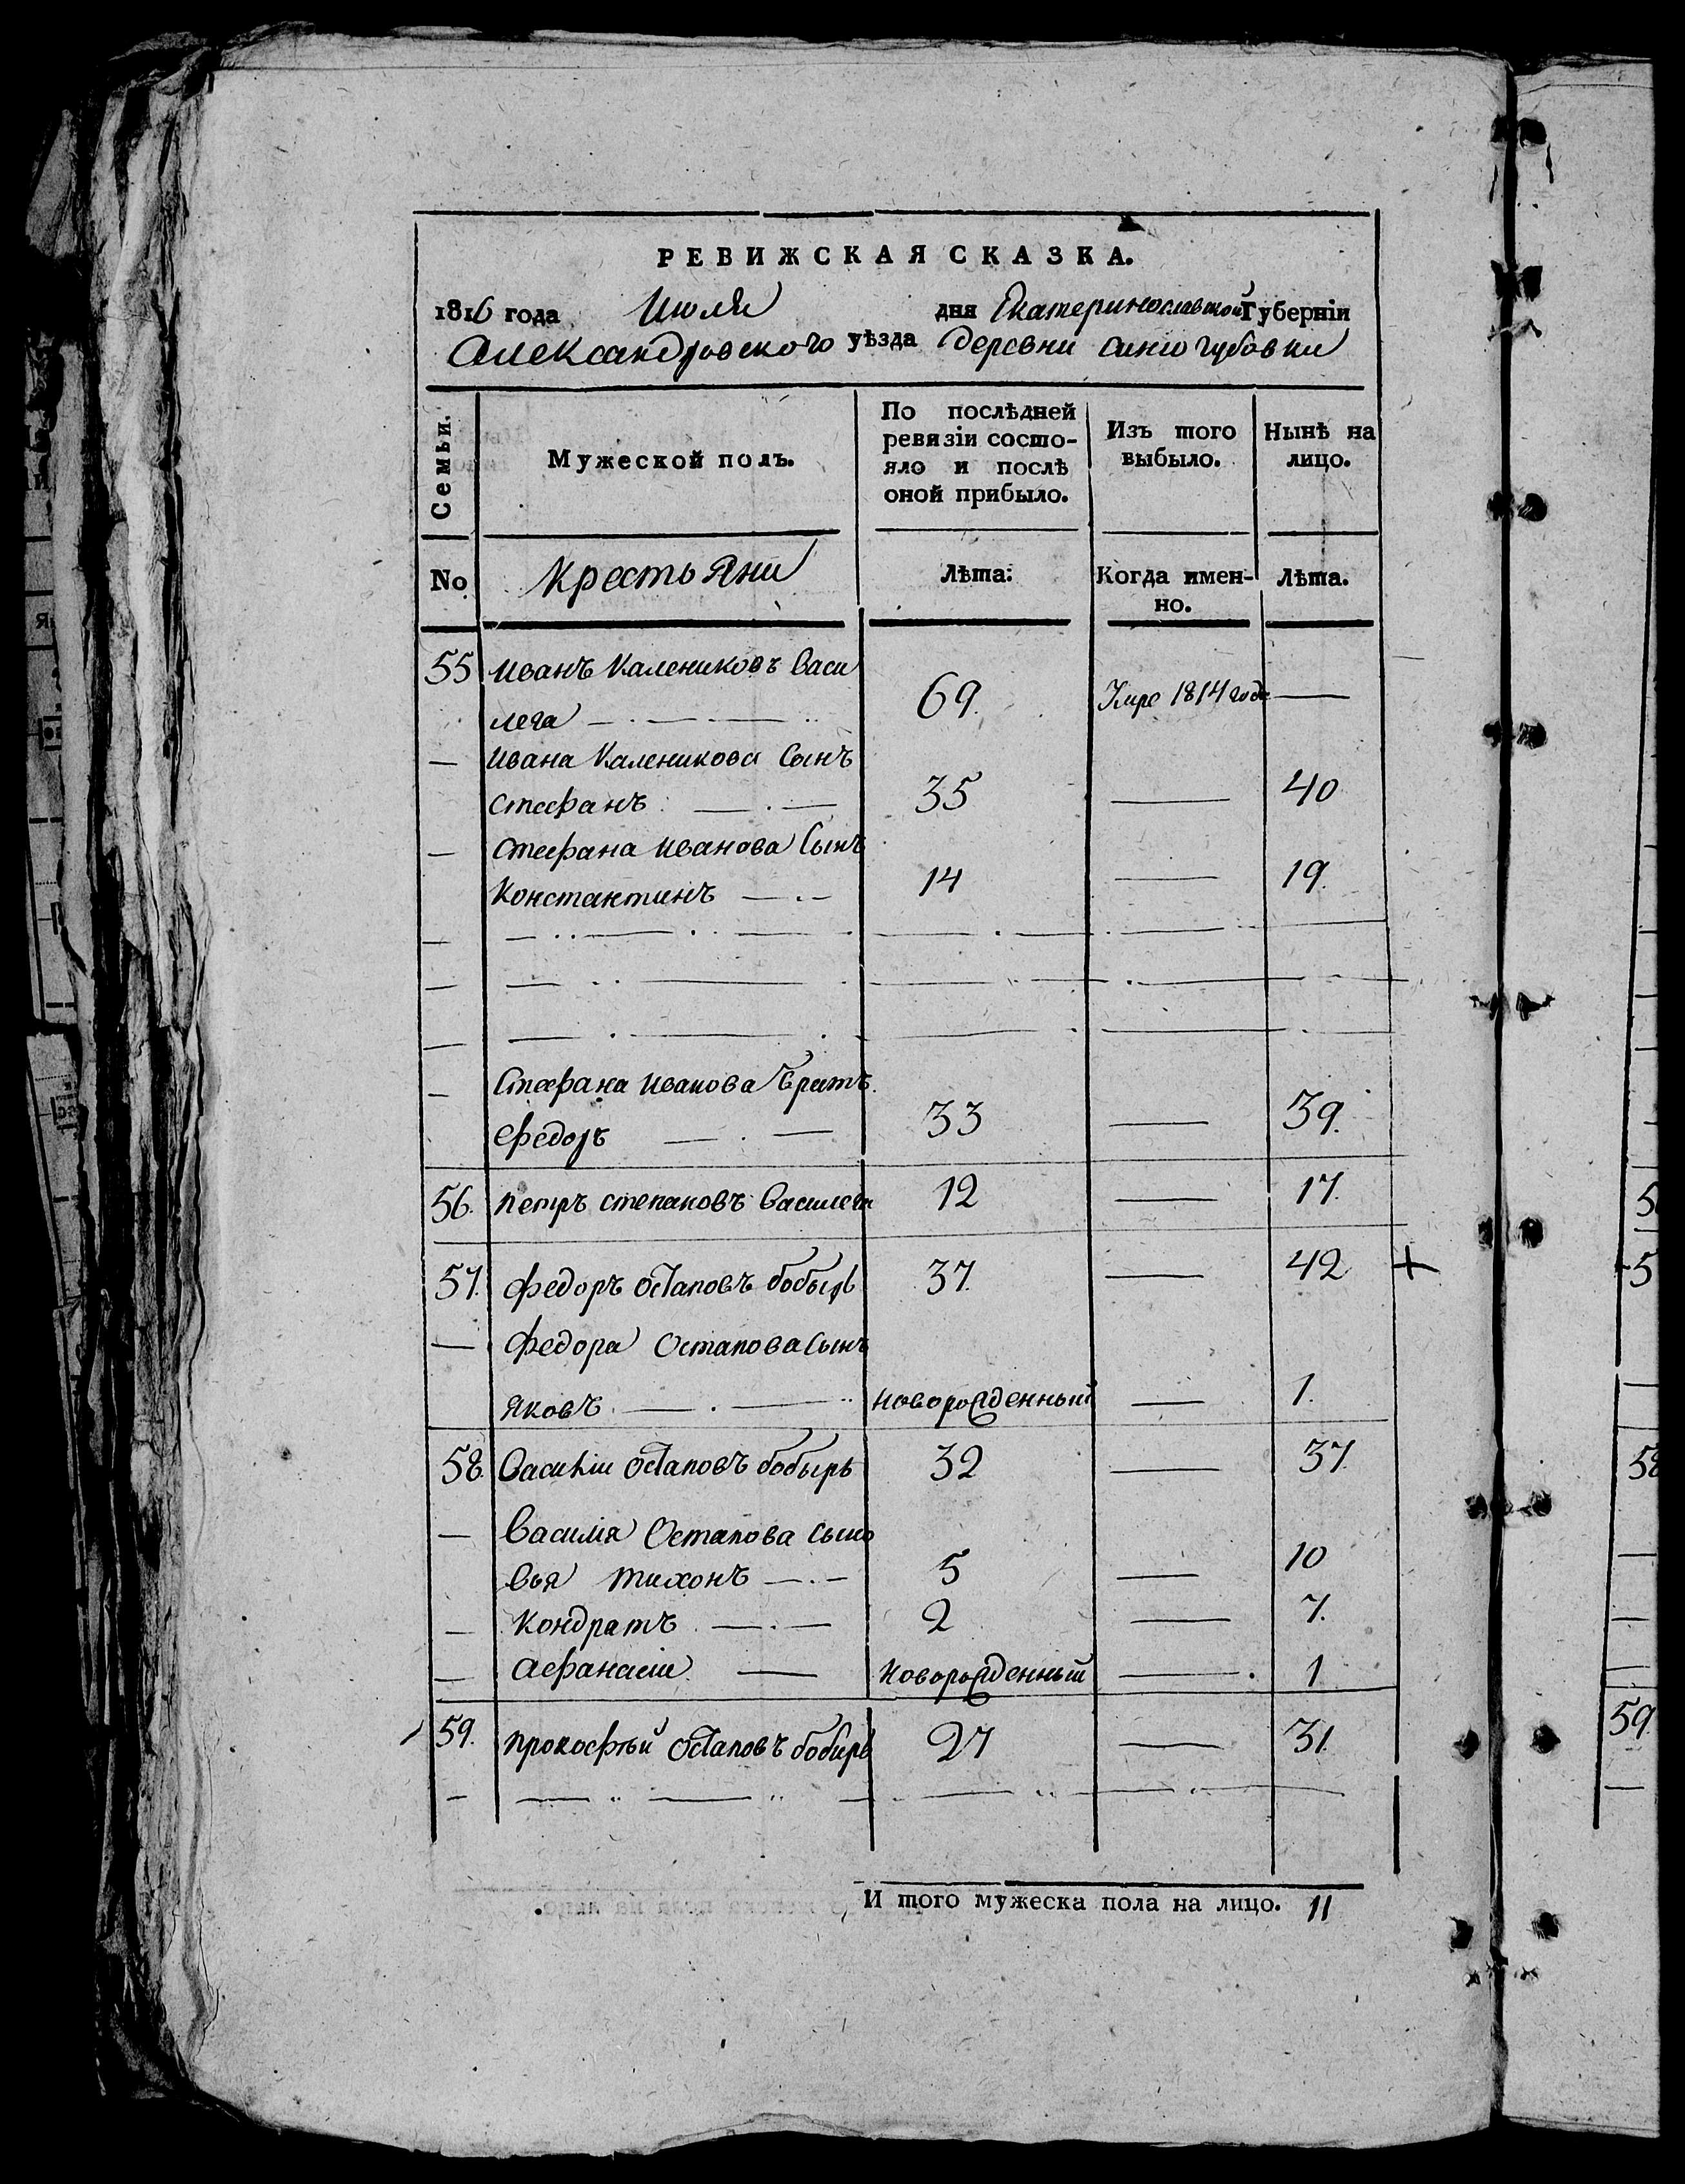 РЕВИЖСКАЯ СКАЗКА.
1816 года Июля дня Екатеринославской Губерніи
Александровского уѣзда деревни Синогубовки
Семьи.
Мужеской полъ.
По послѣдней
ревизіи состо-
яло и послѣ
оной прибыло.
Изъ того
выбыло.
Нынѣ на
лицо.
No
Крестьяни
Лѣта:
Когда имен-
но.
Лѣта.
55 Иванъ Калениковъ Васи
лега 69. Умре 1814 года —
— Ивана Каленикова Сынъ
Стефанъ 35 — 40
— Стефана Иванова Сынъ
Константинъ 14 — 19.
— Стефана Иванова братъ
Федоръ 33 — 39.
56. Петръ Степановъ Василега 12 — 17.
57. Федоръ Остаповъ бобырь 37. — 42 +
— Федора Остапова Сынъ
Яковъ новорожденный — 1.
58. Василіи Остаповъ бобырь 32 — 37.
— Василія Остапова сыно
вья Тихонъ 5 — 10
— Кондратъ 2 — 7.
— Афанасіи новорожденный — 1
59. Прокофтьи Остаповъ бобирь 27 — 31.
И того мужеска пола на лицо. 11
5
5
58
59.